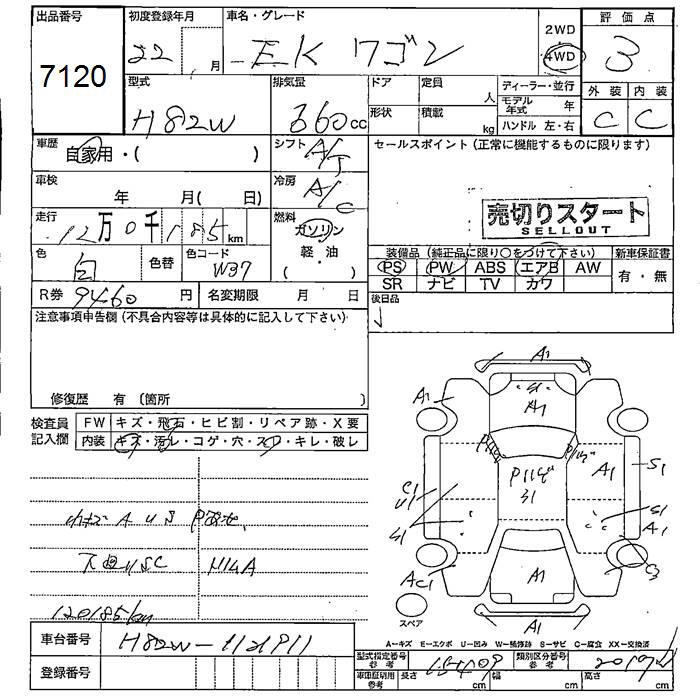 出品番号 初度登録年月 車名・グレード 評価点
7120 22 月 EK ワゴン 2WD 4WD 3
型式 排気量 ドア 定員 ディーラー・並行 外装 内装
H82W 660cc 人 モデル年式 年 C C
形状 積載 kg ハンドル 左・右
車歴 自家用・( ) シフト A/T セールスポイント (正常に機能するものに限ります)
車検 年 月( 日) 冷房 A/C
売切りスタート
SELLOUT
走行 12万0千185km 燃料 ガソリン 軽・油 ( )
色 白 色替 色コード W37
装備品 (純正品に限り○をつけて下さい) 新車保証書
PS PW ABS エアB AW 有・無
SR ナビ TV カワ
R券 9460円 名変期限 月 日 後日品
注意事項申告欄 (不具合内容等は具体的に記入して下さい)
修復歴 有 (箇所 )
検査員記入欄 FW キズ・飛石・ヒビ割・リペア跡・X要
内装 キズ・汚レ・コゲ・穴・スレ・キレ・破レ
A1
A1 S1
A1
A1 S1
S1
C1
U1
S1 S1
A1
AC1 A1 C3
スペア A1
120185km
A=キズ E=エクボ U=凹み W=補修跡 S=サビ C=腐食 XX=交換済
車台番号 H82W-1121911
型式指定番号 参考 15409 類別区分番号 参考
登録番号 車庫証明用 参考 長さ cm 幅 cm 高さ cm